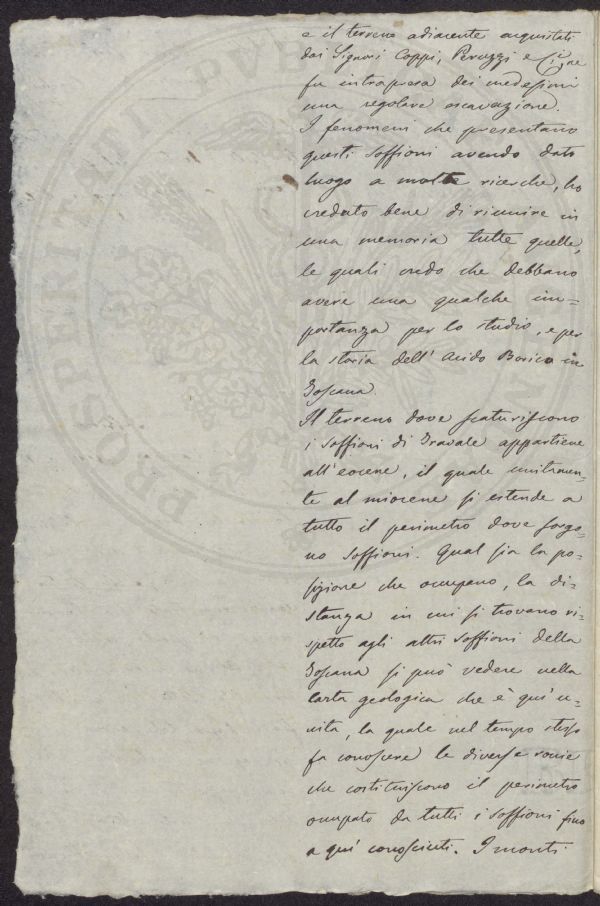 e il terreno adiacente acquistati
dai Signori Coppi, Peruzzi e
fu intrapresa dei medesimi
una regolare escavazione.
I fenomeni che presentano
questi soffioni avendo dato
luogo a molte ricerche, ho
creduto bene di riunire in
una memoria tutte quelle,
le quali credo che debbano
avere una qualche im=
portanza per lo studio, e per
la storia dell'Acido Borico in
Toscana.
Il terreno dove scaturiscono
i soffioni di Travale appartiene
all'eocene, il quale unitamen=
te al miocene si estende a
tutto il perimetro dove sorgo=
no soffioni. Qual sia la po=
sizione che occupano, la di=
stanza in cui si trovano ri=
spetto agli altri soffioni della
Toscana si può vedere nella
carta geologica che è quì u=
nita, la quale nel tempo stesso
fa conoscere le diverse rocce
che costituiscono il perimetro
occupato da tutti i soffioni fino
a quì conosciuti. I monti
PROSPERITAS PUB